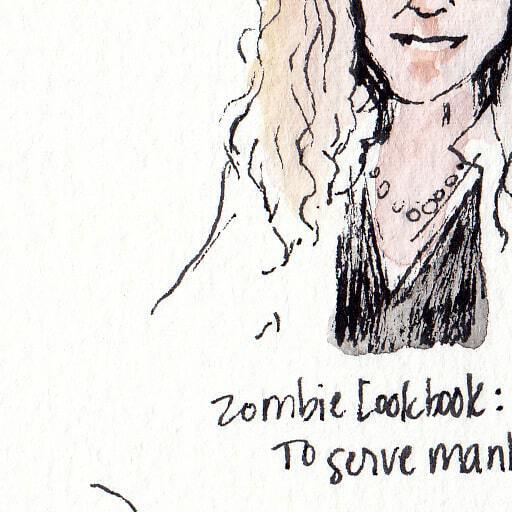 zombie Cookbook:
To serve man